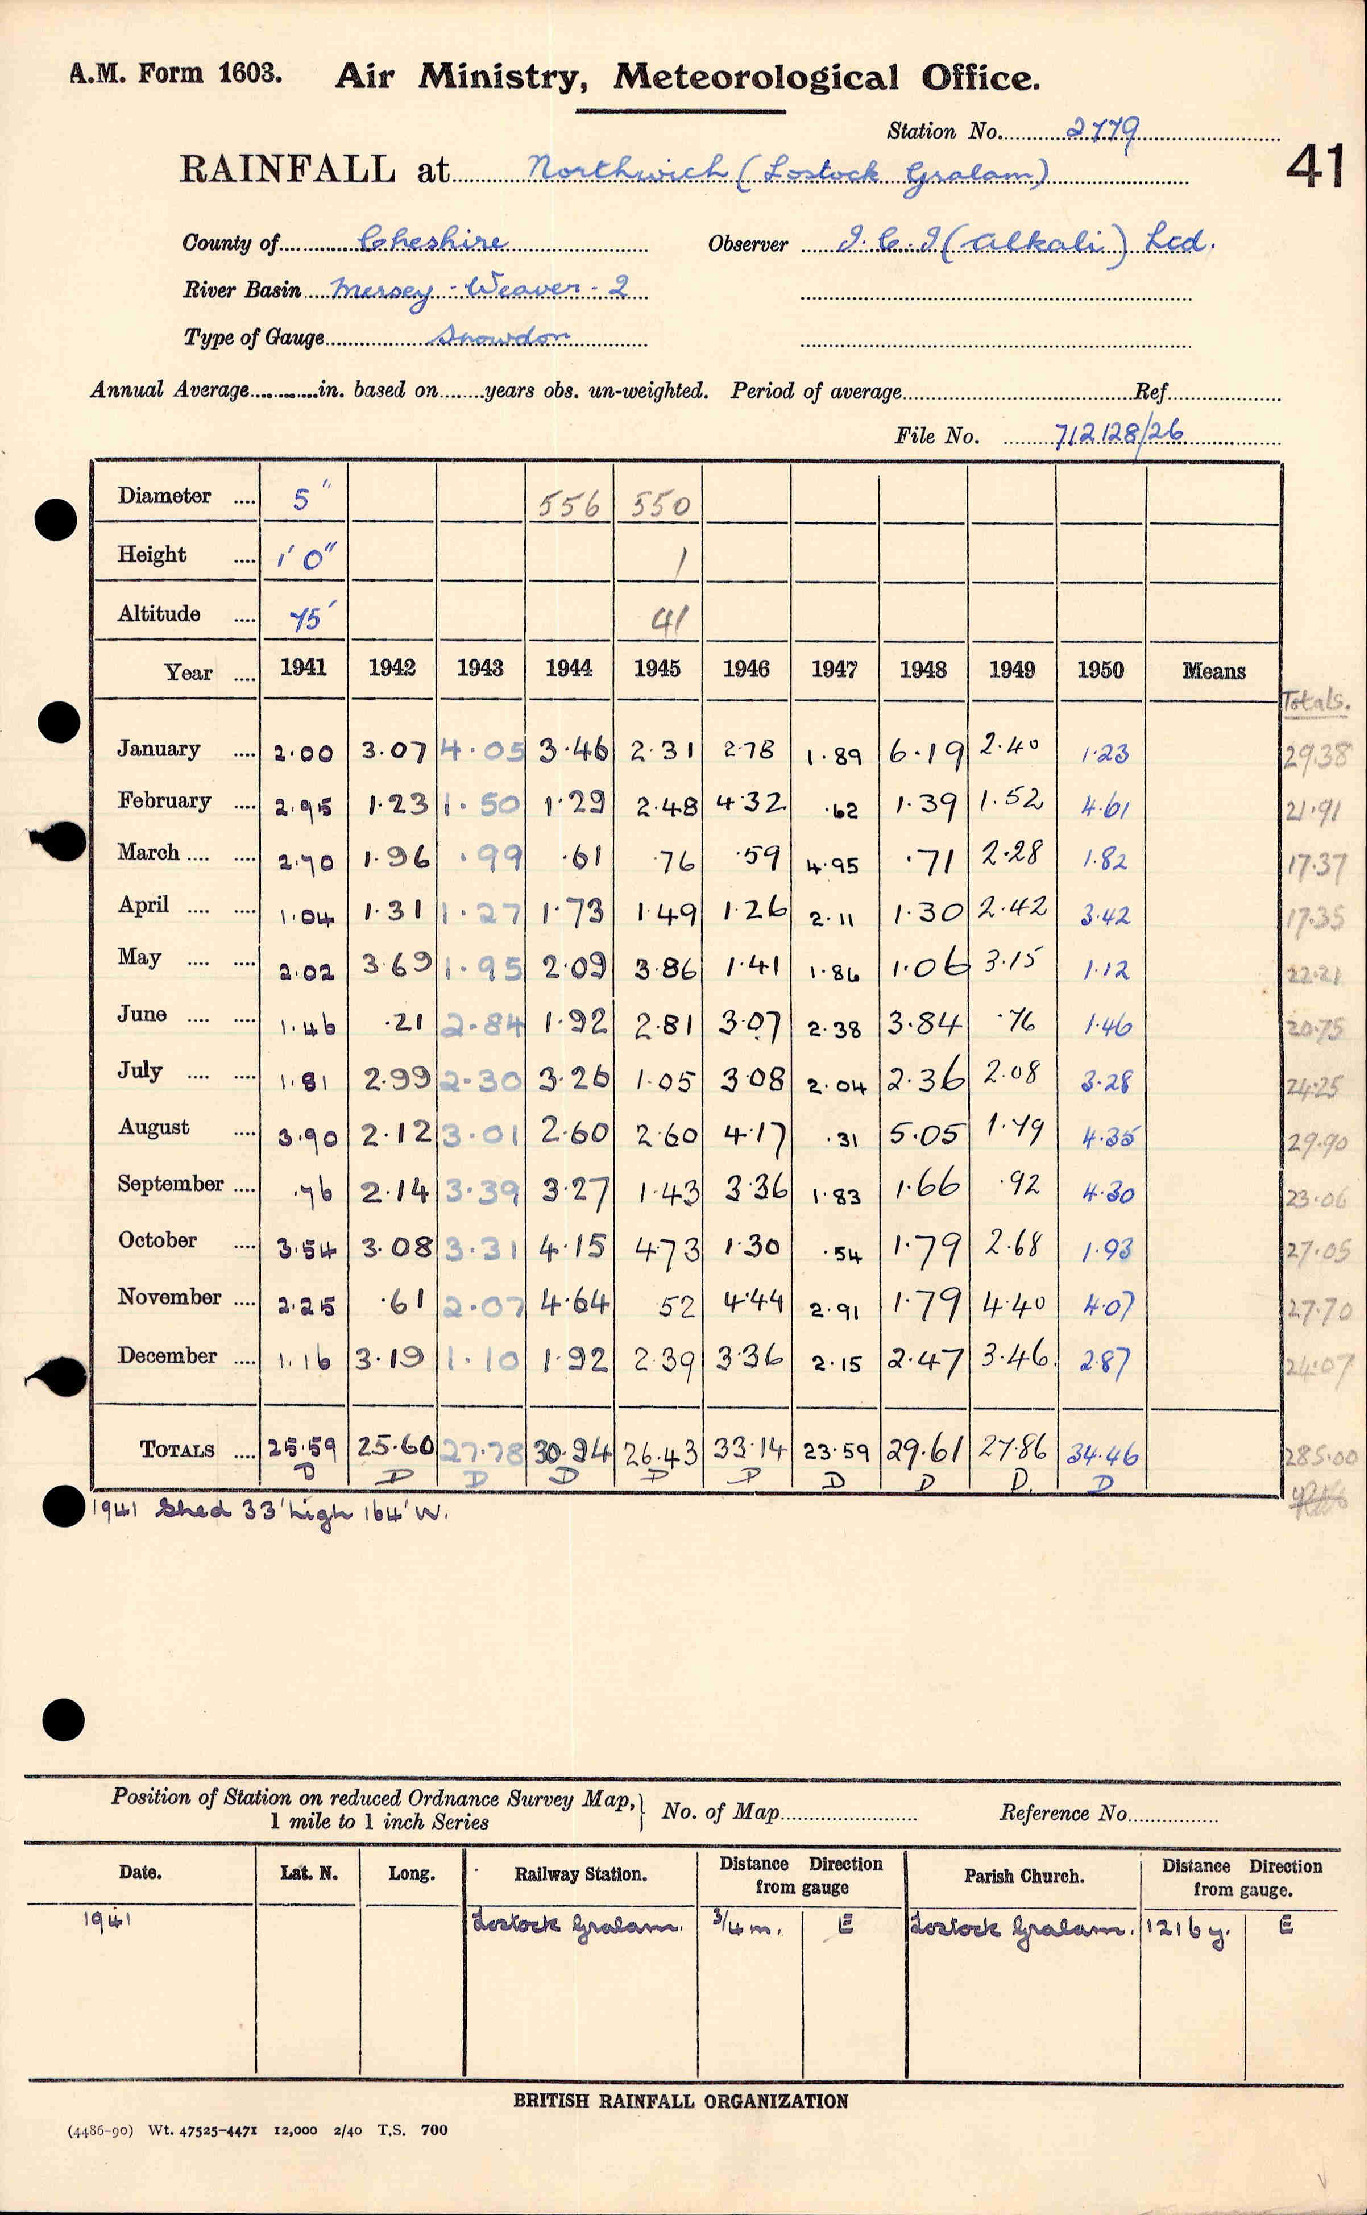 A.M. Form 1603. Air Ministry, Meteorological Office.
Station No. 2779
41
RAINFALL at Northwich (Lostock Gralam)
County of Cheshire Observer I.C.I (Alkali) Ltd.
River Basin Mersey - Weaver - 2
Type of Gauge Snowdon
Annual Average in. based on years obs. un-weighted. Period of average Ref.
File No. 712128/26
Diameter 5" 556 550
Height 1' 0" 1
Altitude 75' 41
Year 1941 1942 1943 1944 1945 1946 1947 1948 1949 1950 Means
Totals.
January 2.00 3.07 4.05 3.46 2.31 2.78 1.89 6.19 2.40 1.23 29.38
February 2.95 1.23 1.50 1.29 2.48 4.32 .62 1.39 1.52 4.61 21.91
March 2.70 1.96 .99 .61 .76 .59 4.95 .71 2.28 1.82 17.37
April 1.04 1.31 1.27 1.73 1.49 1.26 2.11 1.30 2.42 3.42 17.35
May 2.02 3.69 1.95 2.09 3.86 1.41 1.86 1.06 3.15 1.12 22.21
June 1.46 .21 2.84 1.92 2.81 3.07 2.38 3.84 .76 1.46 20.75
July 1.81 2.99 2.30 3.26 1.05 3.08 2.04 2.36 2.08 3.28 24.25
August 3.90 2.12 3.01 2.60 2.60 4.17 .31 5.05 1.79 4.35 29.90
September .76 2.14 3.39 3.27 1.43 3.36 1.83 1.66 .92 4.30 23.06
October 3.54 3.08 3.31 4.15 4.73 1.30 .54 1.79 2.68 1.93 27.05
November 2.25 .61 2.07 4.64 52 4.44 2.91 1.79 4.40 4.07 27.70
December 1.16 3.19 1.10 1.92 2.39 3.36 2.15 2.47 3.46 2.87 24.07
TOTALS 25.59 25.60 27.78 30.94 26.43 33.14 23.59 29.61 27.86 34.46 285.00
D D D D D D D D D. D
1941 Shed 33' high 164' W.
Position of Station on reduced Ordnance Survey Map, 1 mile to 1 inch Series No. of Map Reference No.
Date. Lat. N. Long. Railway Station. Distance Direction from gauge Parish Church. Distance Direction from gauge.
1941 Lostock Gralam. 3/4 m. E Lostock Gralam. 1216 y. E
BRITISH RAINFALL ORGANIZATION
(4486-90) Wt. 47525-4471 12,000 2/40 T.S. 700